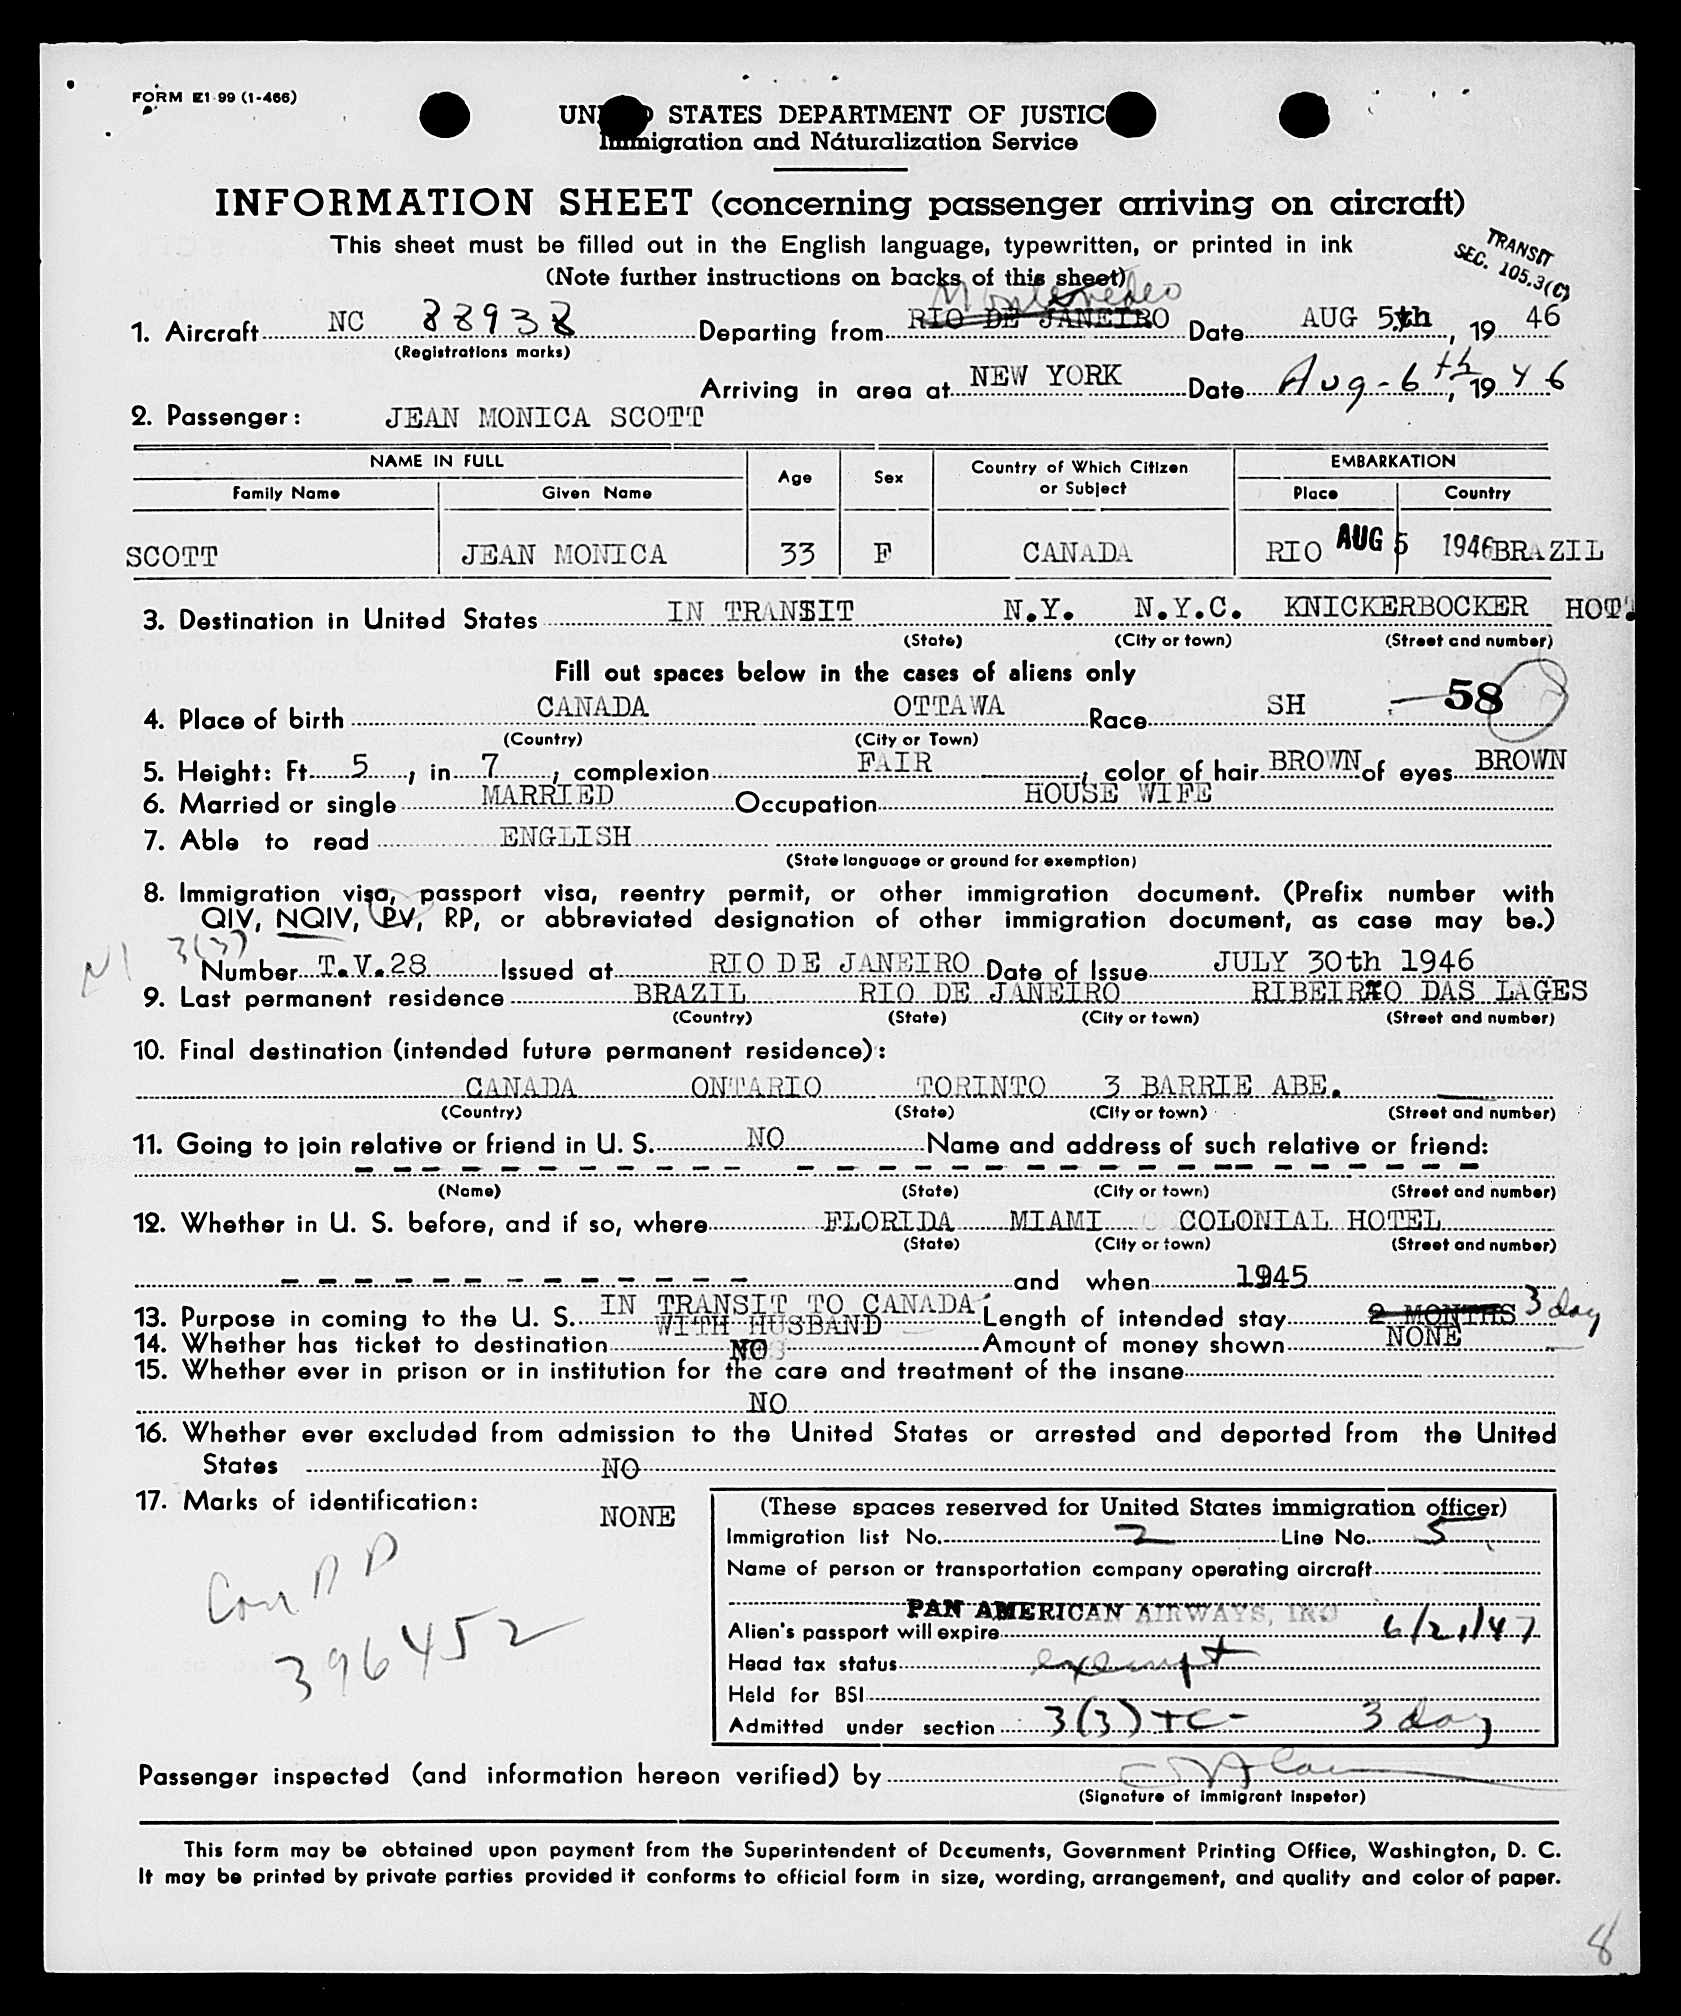 FORM E1-99 (1-466)
UNITED STATES DEPARTMENT OF JUSTICE
Immigration and Naturalization Service
INFORMATION SHEET (concerning passenger arriving on aircraft)
This sheet must be filled out in the English language, typewritten, or printed in ink
(Note further instructions on backs of this sheet)
TRANSIT
SEC. 105.3(C)
Montevedeo
1. Aircraft NC 88938 Departing from RIO DE JANEIRO Date AUG 5th, 19 46
(Registrations marks)
Arriving in area at NEW YORK Date Aug-6th, 19 46
2. Passenger: JEAN MONICA SCOTT
NAME IN FULL Age Sex Country of Which Citizen or Subject EMBARKATION
Family Name Given Name Place Country
SCOTT JEAN MONICA 33 F CANADA RIO AUG 5 1946 BRAZIL
3. Destination in United States IN TRANSIT N.Y. N.Y.C. KNICKERBOCKER HOT.
(State) (City or town) (Street and number)
Fill out spaces below in the cases of aliens only
4. Place of birth CANADA OTTAWA Race SH 58
(Country) (City or Town)
5. Height: Ft. 5, in. 7; complexion FAIR; color of hair BROWN of eyes BROWN
6. Married or single MARRIED Occupation HOUSE WIFE
7. Able to read ENGLISH
(State language or ground for exemption)
8. Immigration visa, passport visa, reentry permit, or other immigration document. (Prefix number with
QIV, NQIV, PV, RP, or abbreviated designation of other immigration document, as case may be.)
NI 3(3)
Number T.V.28 Issued at RIO DE JANEIRO Date of Issue JULY 30th 1946
9. Last permanent residence BRAZIL RIO DE JANEIRO RIBEIRAO DAS LAGES
(Country) (State) (City or town) (Street and number)
10. Final destination (intended future permanent residence):
CANADA ONTARIO TORINTO 3 BARRIE ABE.
(Country) (State) (City or town) (Street and number)
11. Going to join relative or friend in U. S. NO Name and address of such relative or friend:
(Name) (State) (City or town) (Street and number)
12. Whether in U. S. before, and if so, where FLORIDA MIAMI COLONIAL HOTEL
(State) (City or town) (Street and number)
and when 1945
13. Purpose in coming to the U. S. IN TRANSIT TO CANADA WITH HUSBAND Length of intended stay 2 MONTHS 3 day
14. Whether has ticket to destination NO Amount of money shown NONE
15. Whether ever in prison or in institution for the care and treatment of the insane
NO
16. Whether ever excluded from admission to the United States or arrested and deported from the United
States NO
17. Marks of identification: NONE
(These spaces reserved for United States immigration officer)
Immigration list No. 2 Line No. 5
Name of person or transportation company operating aircraft
PAN AMERICAN AIRWAYS, INC
Alien's passport will expire 6/21/47
Head tax status exempt
Held for BSI
Admitted under section 3(3) TC - 3 day
Can PP
396452
Passenger inspected (and information hereon verified) by
(Signature of immigrant inspetor)
This form may be obtained upon payment from the Superintendent of Documents, Government Printing Office, Washington, D. C.
It may be printed by private parties provided it conforms to official form in size, wording, arrangement, and quality and color of paper.
8